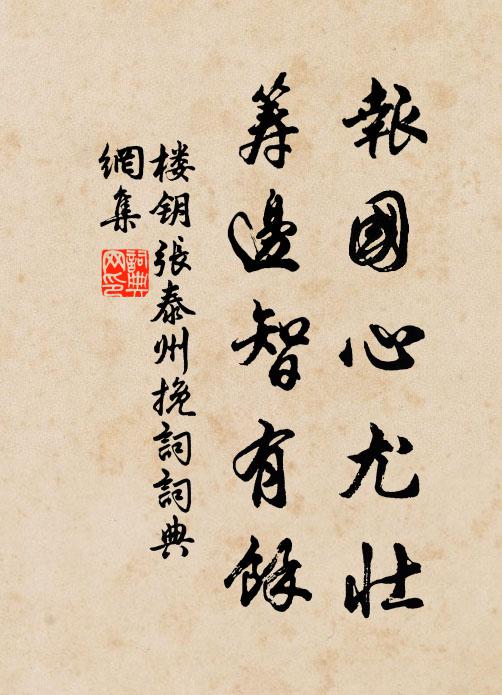 報國心尤壯
籌邊智有餘
楼钥張泰州挽詞詞典
網集
詞典
网印